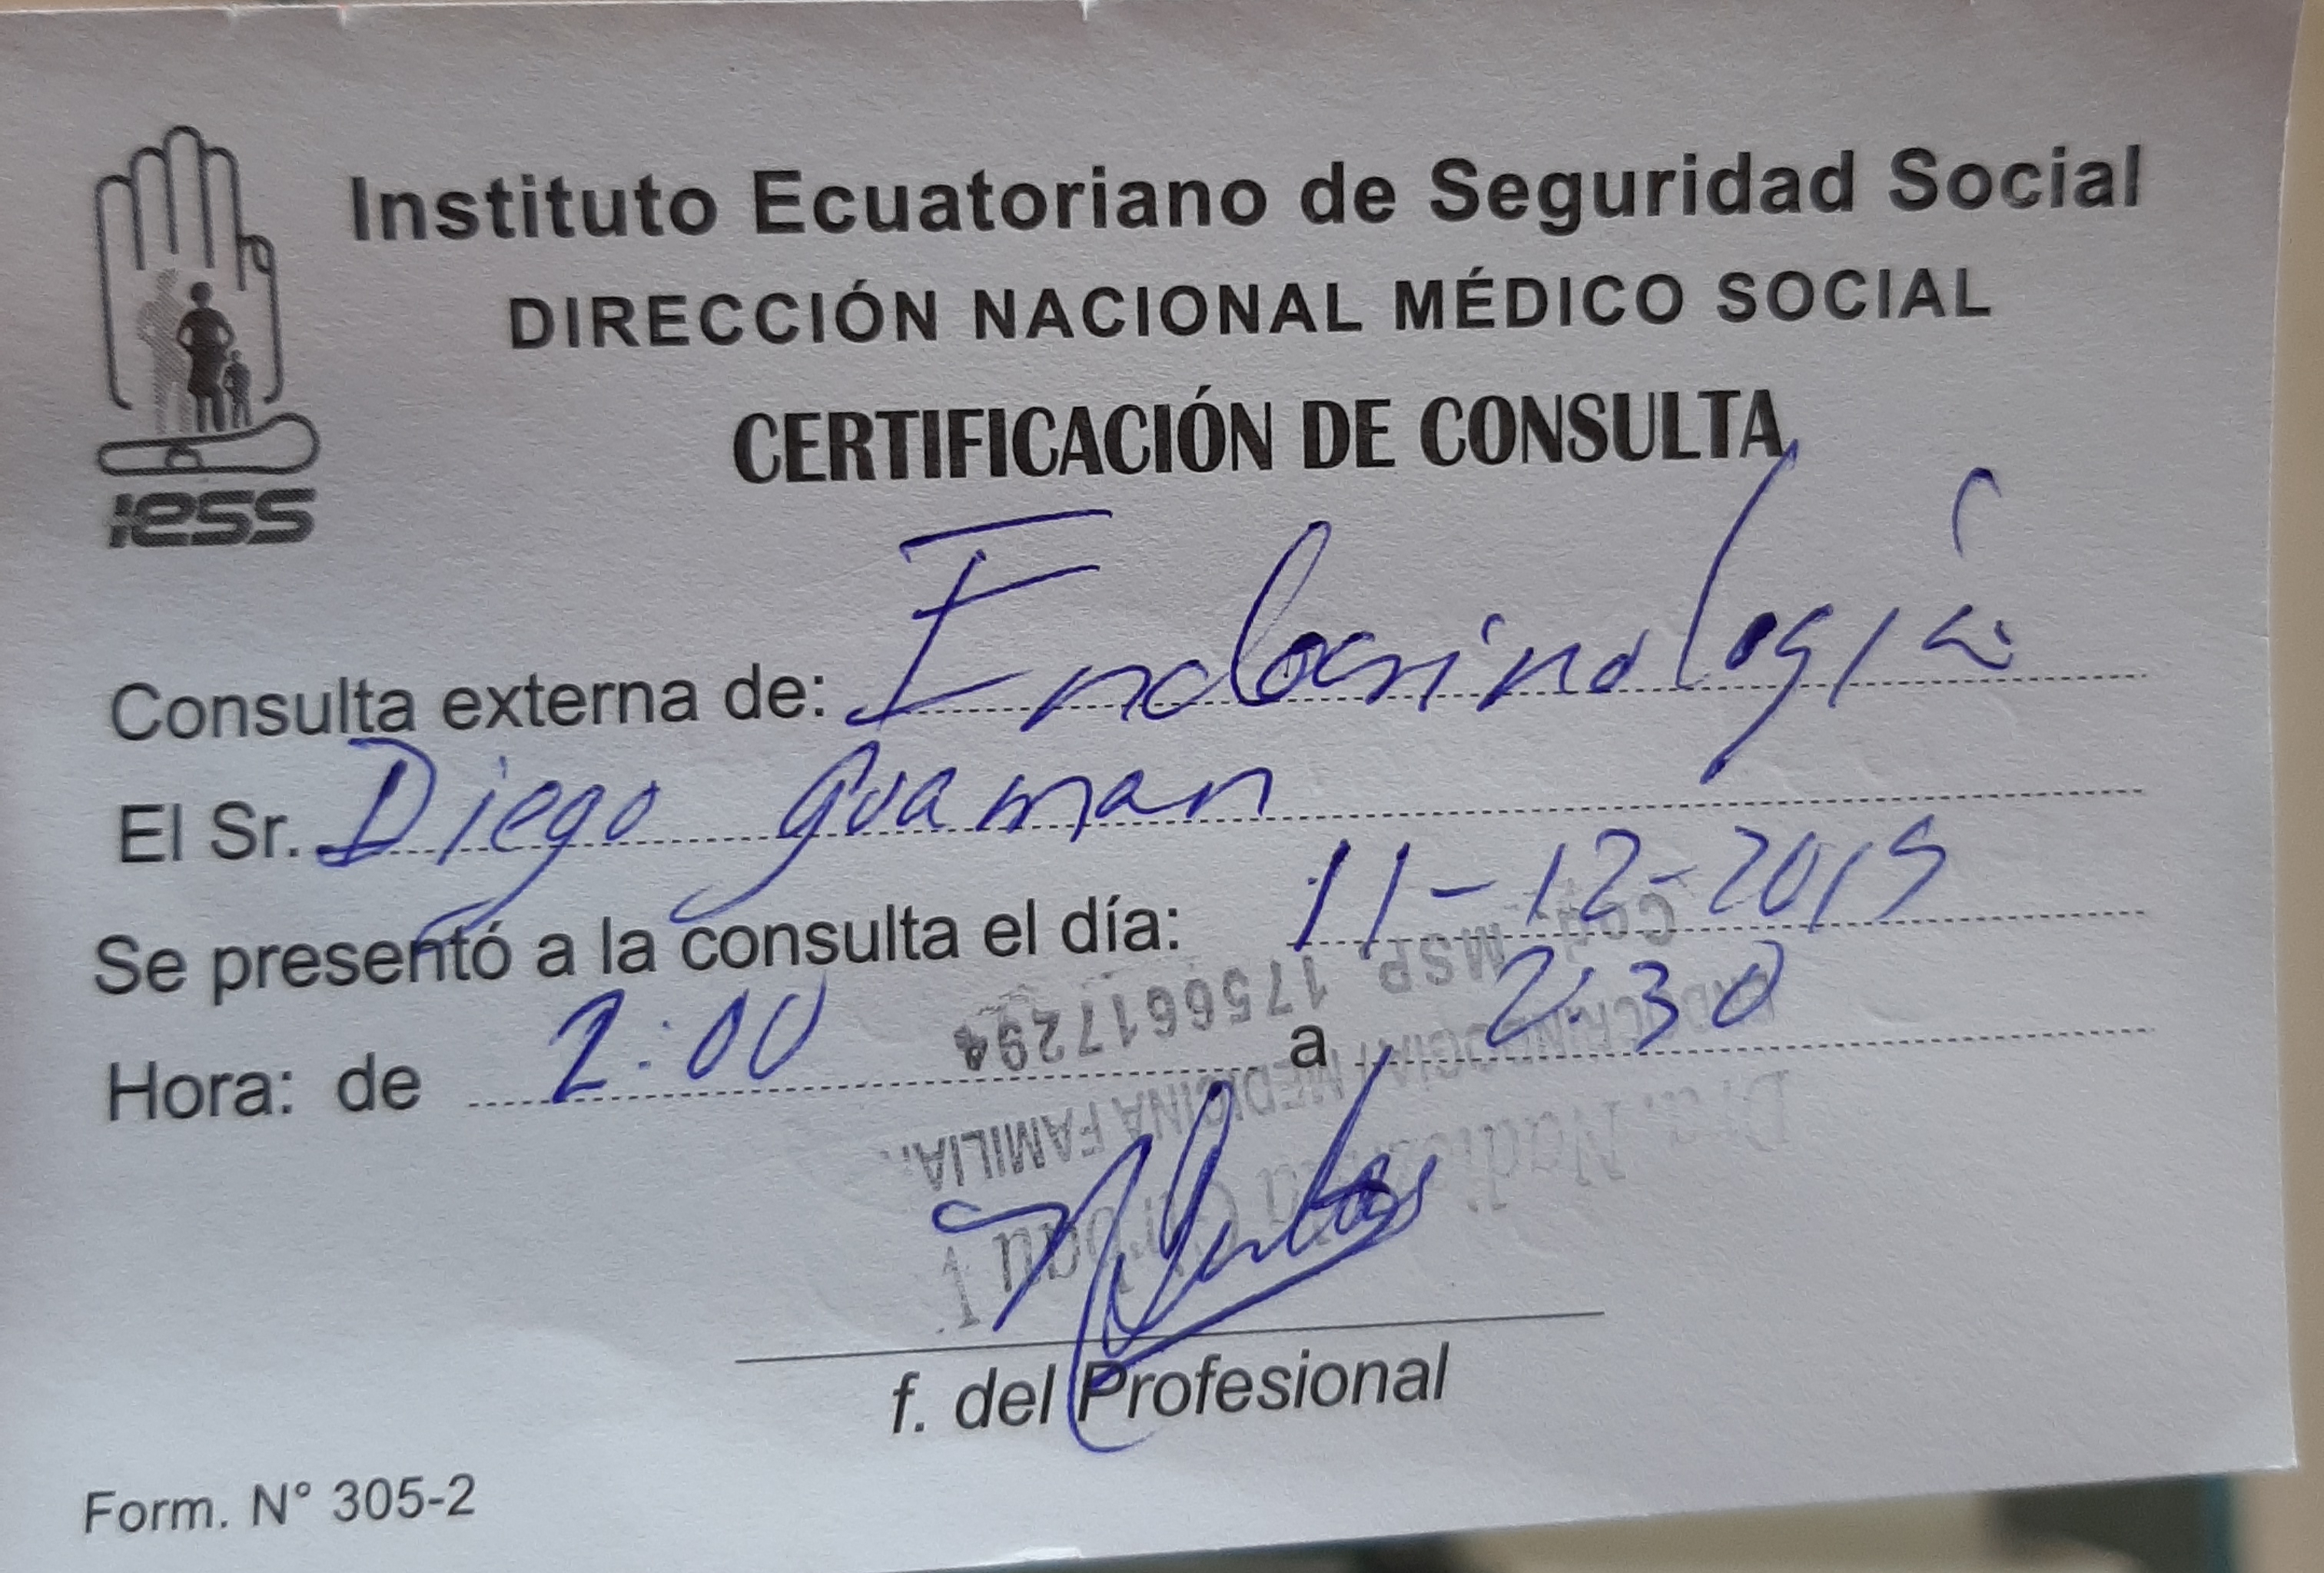 Instituto Ecuatoriano de Seguridad Social
DIRECCIÓN NACIONAL MÉDICO SOCIAL
CERTIFICACIÓN DE CONSULTA
iess
Consulta externa de: Endocrinología
El Sr. Diego Guaman
Se presentó a la consulta el día: 11-12-2019
Hora: de 2:00 a 2:30
Dra.
ENDOCRINOLOGIA / MEDICINA FAMILIA
Cod. MSP 1756617294
f. del Profesional
Form. N° 305-2